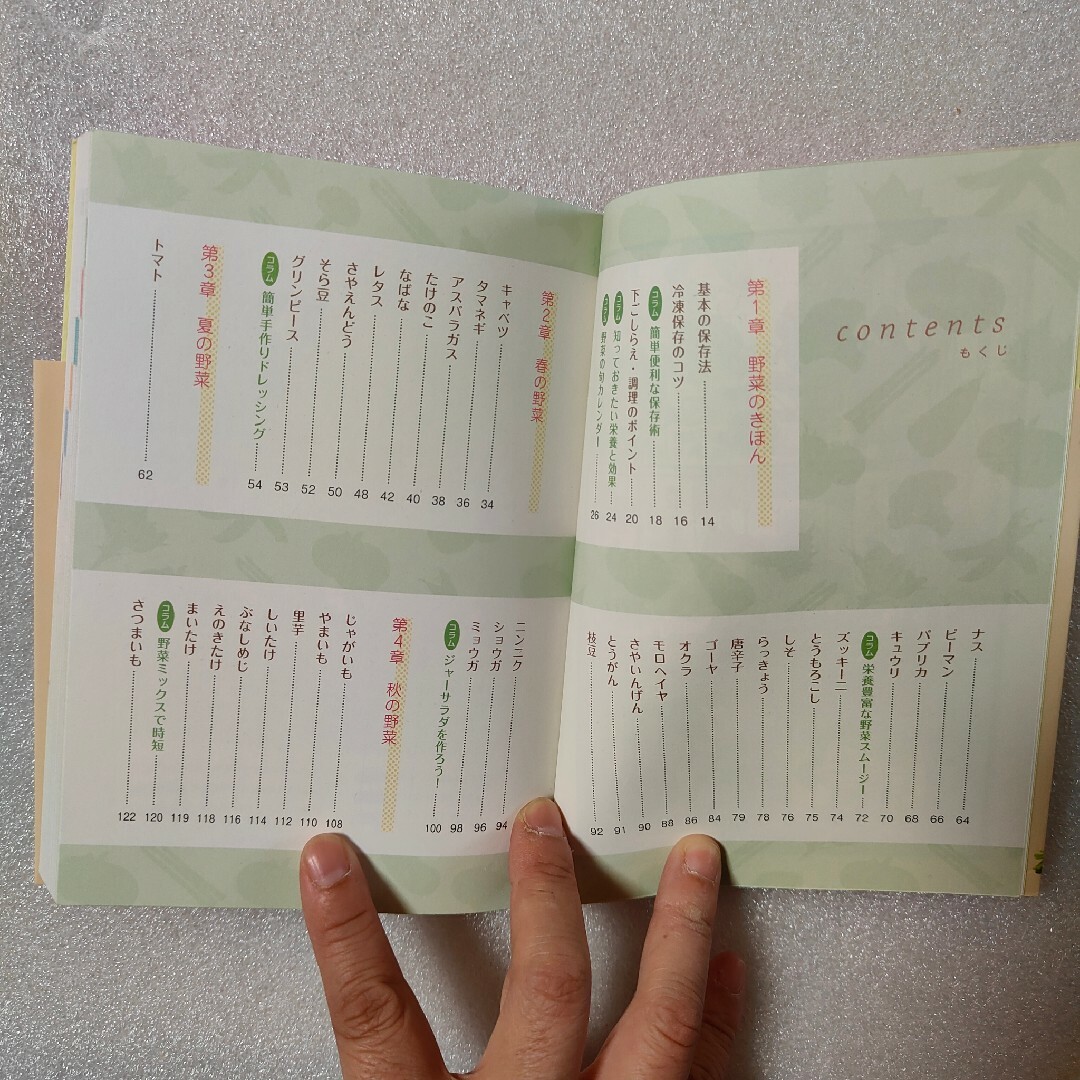 contents
もくじ
第1章 野菜のきほん
基本の保存法 14
冷凍保存のコツ 16
コラム 簡単便利な保存術 18
下ごしらえ・調理のポイント 20
コラム 知っておきたい栄養と効果 24
コラム 野菜の旬カレンダー 26
第2章 春の野菜
キャベツ 34
タマネギ 36
アスパラガス 38
たけのこ 40
なばな 42
レタス 48
さやえんどう 50
そら豆 52
グリンピース 53
コラム 簡単手作りドレッシング 54
第3章 夏の野菜
トマト 62
ナス 64
ピーマン 66
パプリカ 68
キュウリ 70
コラム 栄養豊富な野菜スムージー 72
ズッキーニ 74
とうもろこし 75
しそ 76
らっきょう 78
唐辛子 79
ゴーヤ 84
オクラ 86
モロヘイヤ 88
さやいんげん 90
とうがん 91
枝豆 92
ニンニク 94
ショウガ 96
ミョウガ 98
コラム ジャーサラダを作ろう! 100
第4章 秋の野菜
じゃがいも 108
やまいも 110
里芋 112
しいたけ 114
ぶなしめじ 116
えのきたけ 118
まいたけ 119
コラム 野菜ミックスで時短 120
さつまいも 122